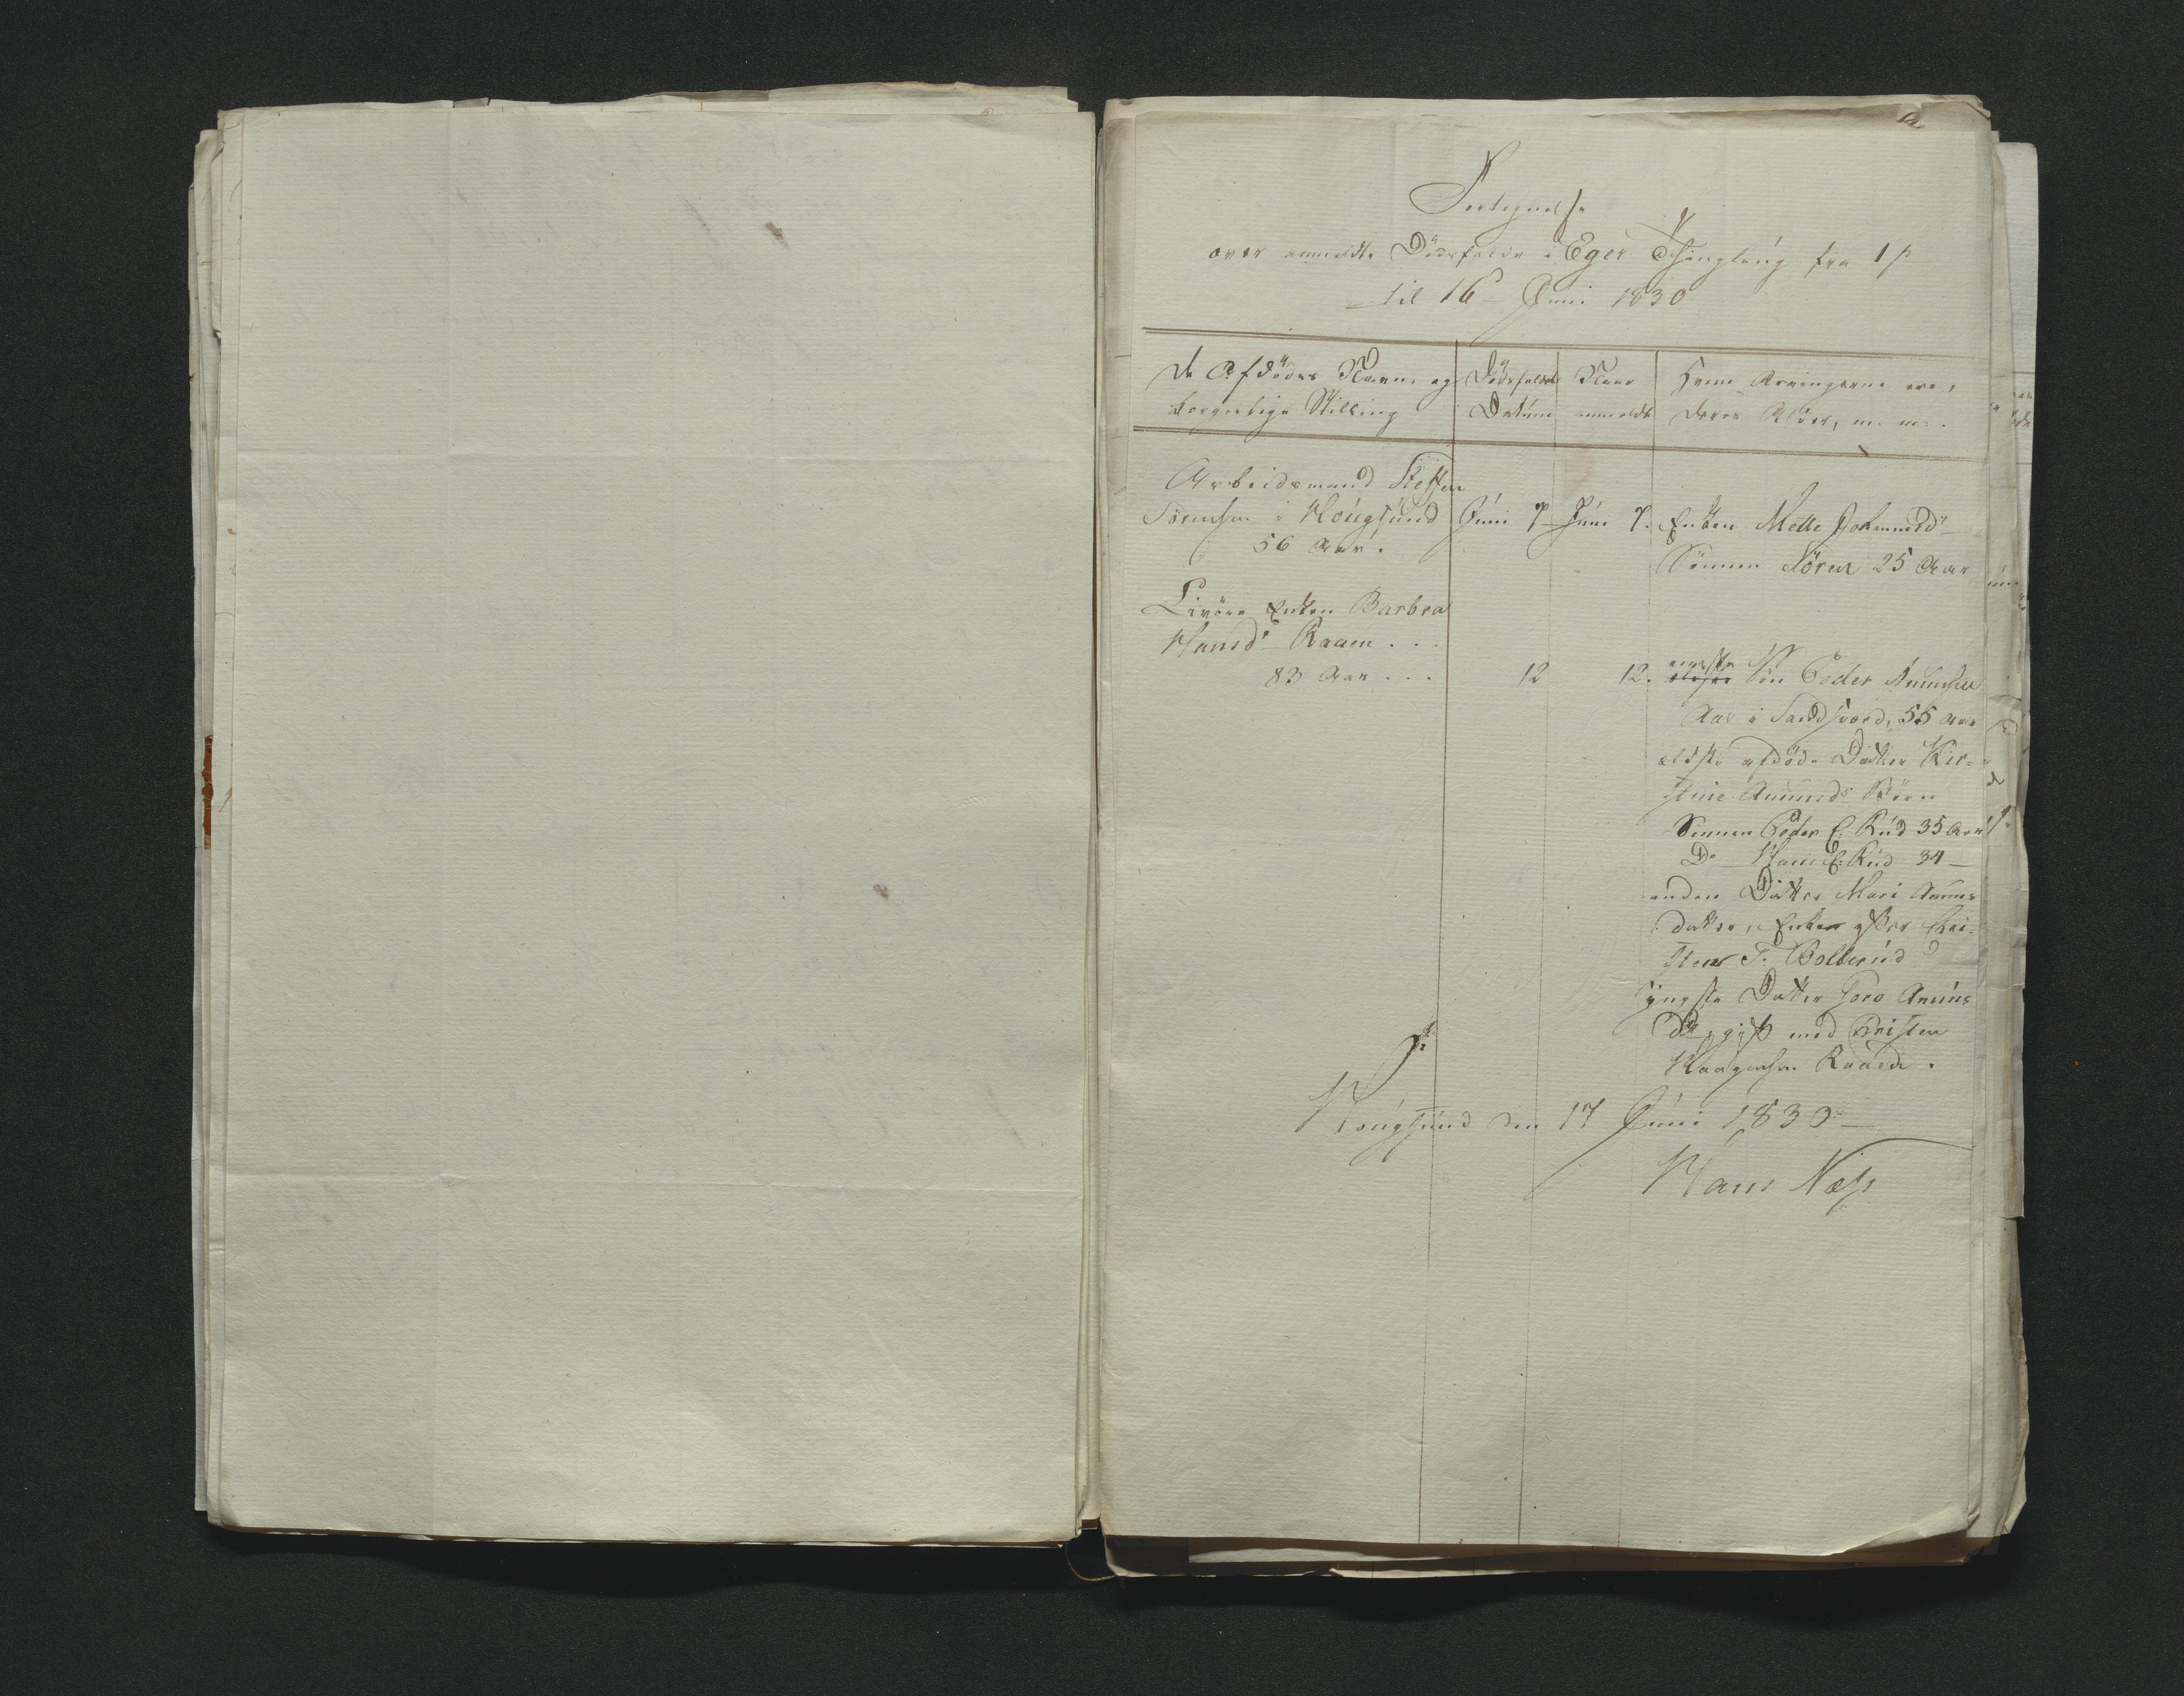 Fortegnelse
over anmeldte Dödsfalde i Eger Thinglaug fra 1ste
til 16 Juni 1830
De Afdödes Navne og
borgerlige Stilling
Dödsfaldets
Datum
Naar
anmeldt
Hvem Arvingerne ere,
deres Alder, m. m.
Arbeidsmand Steffen
Sörensen i Hougsund Juni 7 Juni 7. Enken Mette
56 Aar.
Sönnen Sören 25 Aar
Enken Barbra
Hansd. Raaen . . .
83 Aar . . . 12 12. eneste ældste Sön Peder Amundsen
Aas i Sandsværd, 55 Aar
ældste afdöde Datter Kir=
stine Amunds Börn
Sönnen Peder E. Rud 35 Aar
Do Hans E. Rud 34 —
anden Datter Mari Amunds
datter, Enke efter Chri=
sten T. Bollerud
yngste Datter Goro Amunds
Dtr, gift med Christen
Haagensen Raaen.
Hougsund den 17 Juni 1830
Hans Næss